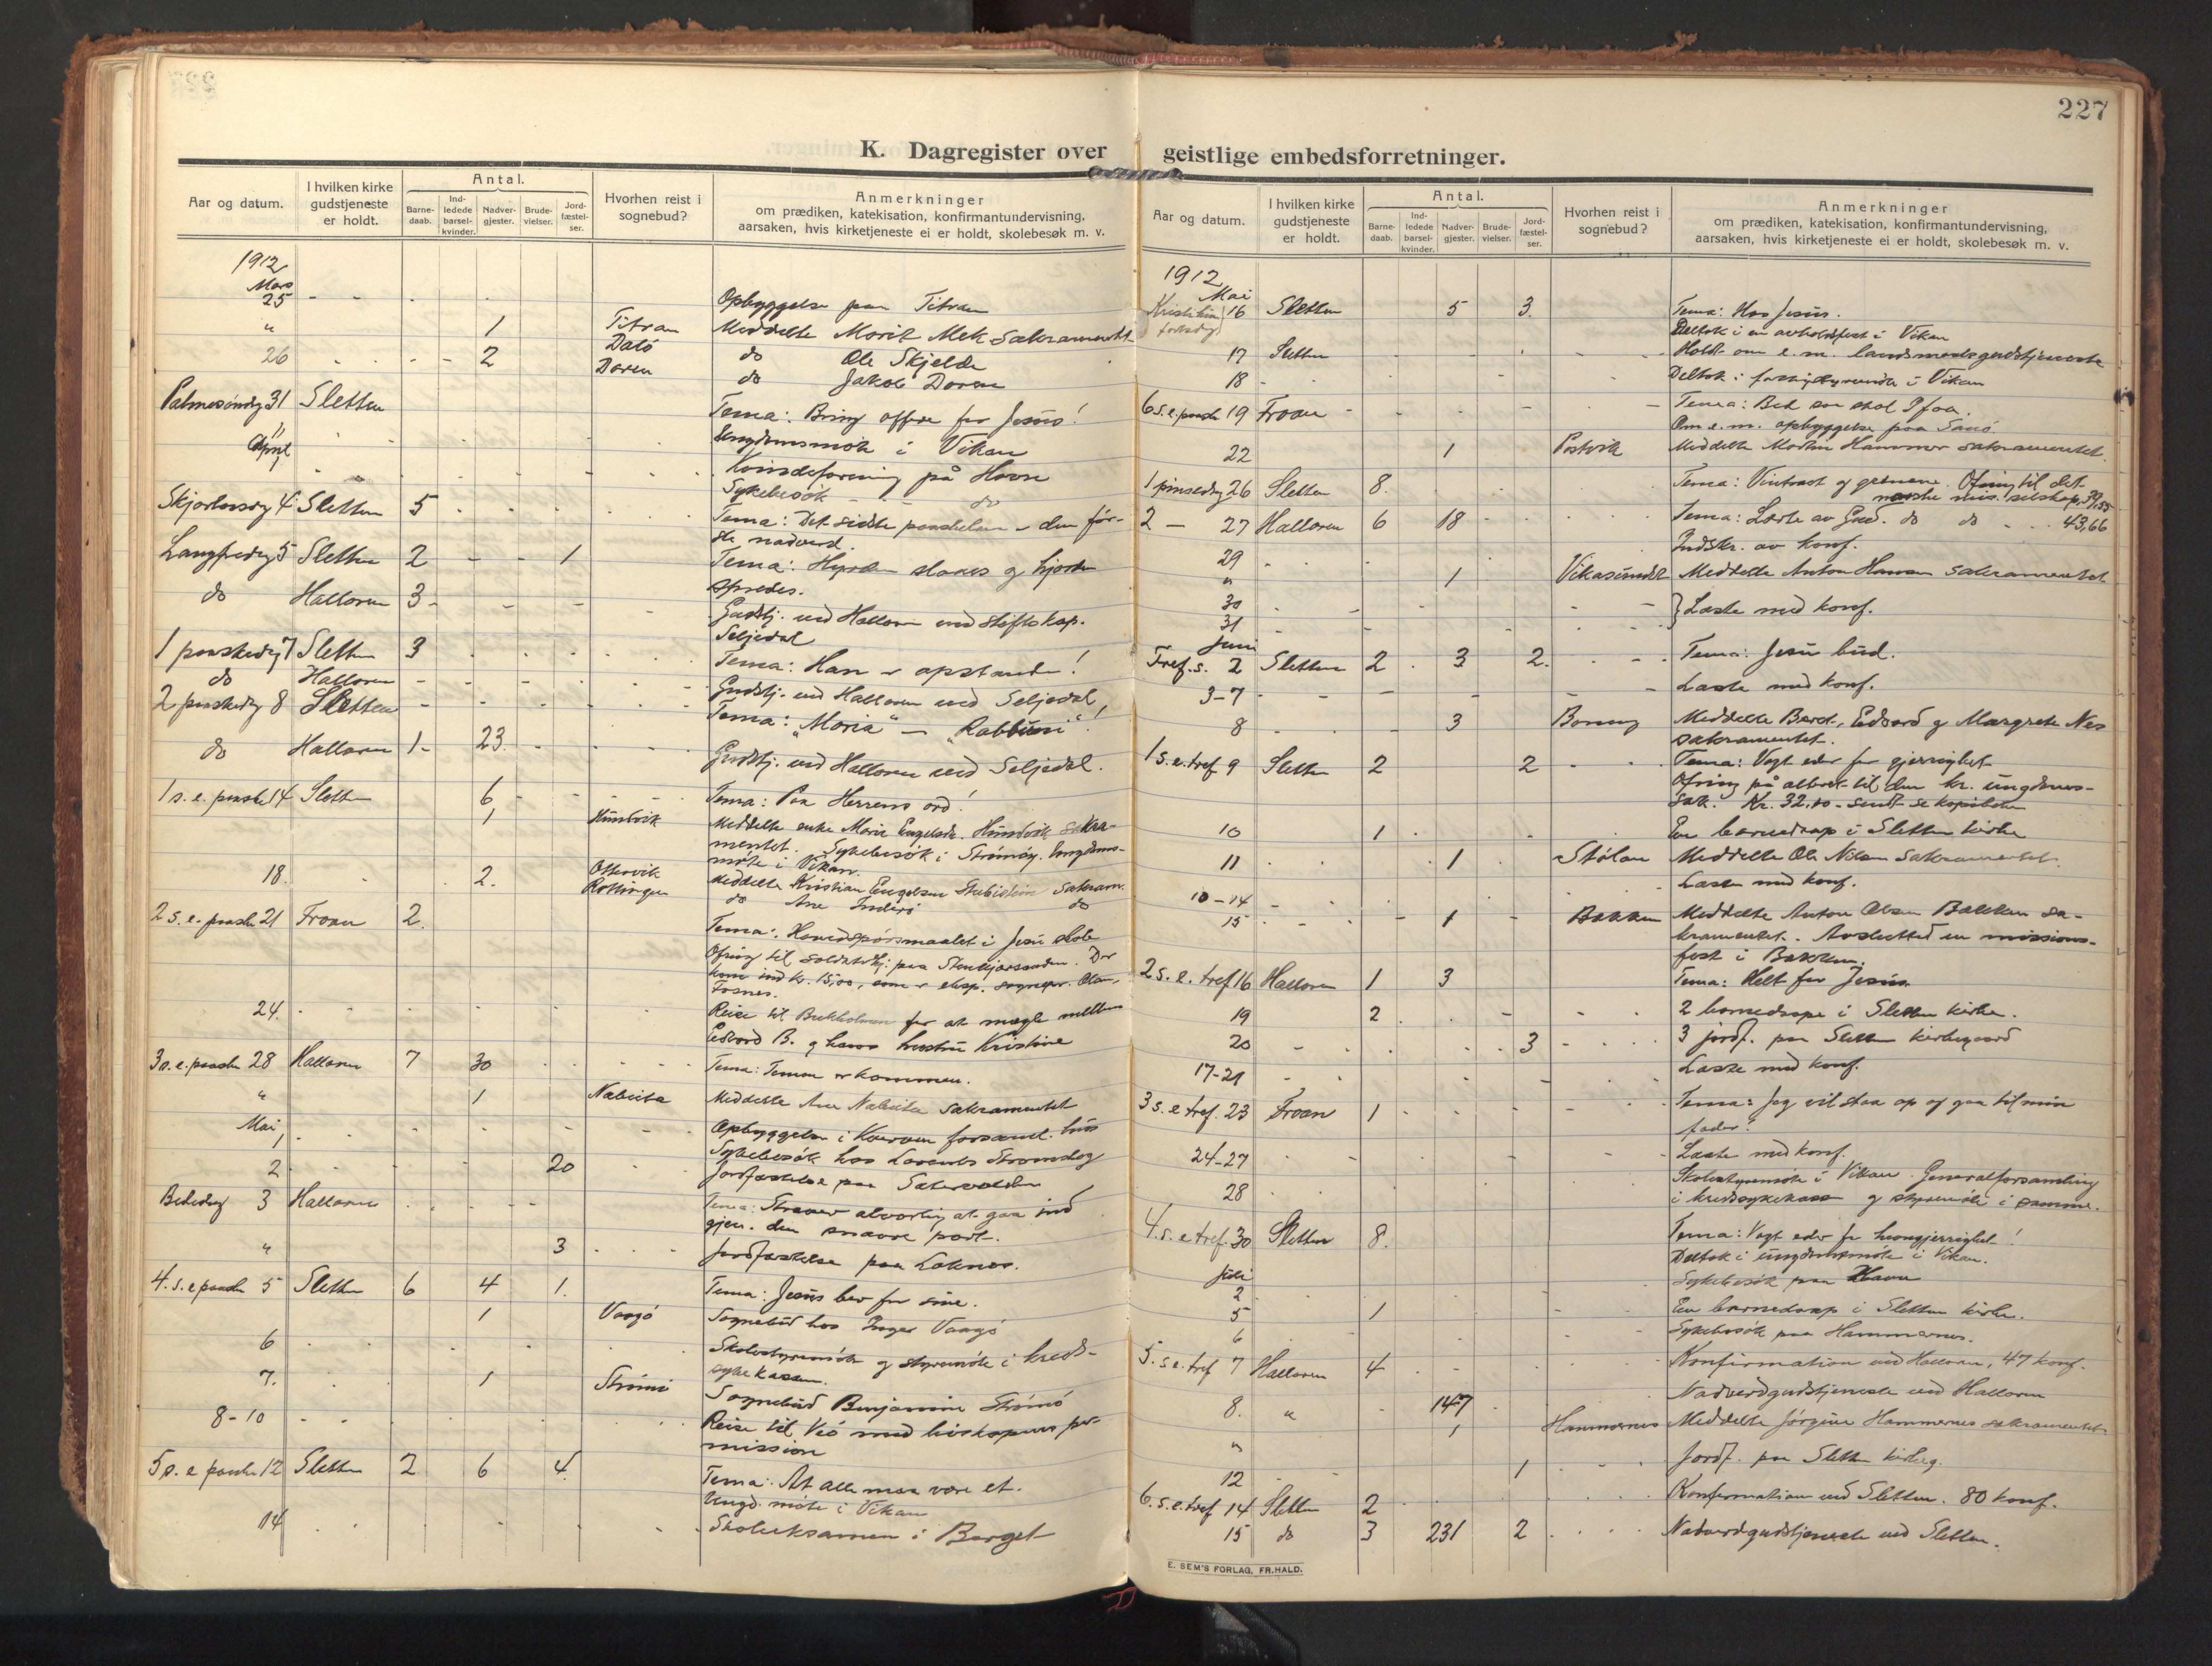 227
K. Dagregister over geistlige embedsforretninger.
Aar og datum.
I hvilken kirke gudstjeneste er holdt.
Antal.
Barne-daab.
Ind-ledede barsel-kvinder.
Nadver-gjester.
Brude-vielser.
Jord-fæstel-ser.
Hvorhen reist i sognebud?
Anmerkninger
om prædiken, katekisation, konfirmantundervisning,
aarsaken, hvis kirketjeneste ei er holdt, skolebesøk m. v.
1912
Mars
25 Opbyggelse paa Titran
" 1 Titran Meddelte Marit Mek sakramentet
26 2 Dalö do Ole Skjelde
Doren do Jakob Doren
Palmesöndag 31 Sletten Tema: Bring offere for Jesus!
" Ungdomsmöte i Vikan
April
1 Kvindeforening på Havn
Sykebesök do
Skjærtorsdag 4 Sletten 5 Tema: Det sidste paaskelam - den för-
ste nadverd.
Langfredag 5 Sletten 2 1 Tema: Hyrden slaaes og hjorden
spredes.
do Halloren 3 Gudstj. ved Halloren ved stiftskap.
Seljedal
1 paaskedag 7 Sletten 3 Tema: Han er opstanden!
do Halloren Gudstj. ved Halloren ved Seljedal
2 paaskedag 8 Sletten Tema: "Maria" - "Rabbuni"!
do Halloren 1 23 Gudstj. ved Halloren ved Seljedal.
1 s. e. paaske 14 Sletten 6 Tema: Paa Herrens ord!
1 Hunsvik Meddelte enke Marie Engelsdr. Hunsvik sakra-
mentet. Sykebesök i Strömöy. Ungdoms-
möte i Vikan.
18. 2. Ottervik Meddelte Kristian Engelsen sakram.
Rottingen do Ane do
2 s. e. paaske 21 Froan 2. Tema: Hovedspörsmaalet i Jesu skole
Ofring til soldaterhj. paa Stenkjærsanden. Der
kom ind kr. 15,00, som er eksp. sognepr.
Fosnes.
24. Reise til Bukholmen for at mægle mellem
Edvard B. og hans hustru Kristine
3 s. e. paaske 28 Halloren 7 30 Tema: Timen er kommen.
" 1 Nabeita Meddelte Ane Nabeita sakramentet
Mai
1 Opbyggelse i Kverven forsaml. hus
Sykebesök hos Laurents
2 20 Jordfæstelse paa
Bededag 3 Halloren Tema: Stræver alvorlig at gaa ind
gjen. den snævre port.
" 3 Jordfæstelse paa Loknes.
4. s. e paaske 5 Sletten 6 4 1. Tema: Jesus bev for sine.
1 Vaagö Sognebud hos Inger Vaagö
6 Skolestyremöte og styremöte i kreds-
sykekassen.
7. 1 Strömö Sognebud Benjamine Strömö
8-10 Reise til Veö med biskopens per-
mission
5 s. e paaske 12 Sletten 2 6 4. Tema: At alle maa være et.
Ungd. möte i Vikan
14 Skoleeksamen i Berget
Aar og datum.
I hvilken kirke gudstjeneste er holdt.
Antal.
Barne-daab.
Ind-ledede barsel-kvinder.
Nadver-gjester.
Brude-vielser.
Jord-fæstel-ser.
Hvorhen reist i sognebud?
Anmerkninger
om prædiken, katekisation, konfirmantundervisning,
aarsaken, hvis kirketjeneste ei er holdt, skolebesøk m. v.
1912
Mai
Kristi him- 16 Sletten 5 3. Tema: Hos Jesus.
Deltok i en avholdsfest i Vikan
17 Sletten Holdt om e. m. landsmøtegudstjeneste
18 Deltok i i Vikan
6 s. e. paaske 19 Froan Tema: Bed saa skal I faa.
Om e. m. opbyggelse paa Sauö
22 1 Postvik Meddelte Martin Hammer sakramentet.
1 pinsedag 26 Sletten 8. Tema: Vintræet og grenene. Ofring til det
norske mis. selskap, 39,55
2 - 27 Halloren 6 18 Tema: Lærte av Gud. do do 43,66
Indskr. av konf.
29 1 Vikasundet Meddelte Anton Hansen sakramentet
"
30 } Læste med konf.
31
Juni
Tref. s. 2 Sletten 2 3 2. Tema: Jesu bud.
3-7 Læste med konf.
8 3 Meddelte Berit, Edvard og Margrete Nes
sakramentet.
1 s. e. tref. 9 Sletten 2 2 Tema: Vogt eder for gjerrighet
Ofring på alteret til den kr. ungdoms-
sak. Kr. 32.10 - sendt se kopiboken
10 1 En barnedaap i Sletten kirke
11 1 Stölan Meddelte Ole Nilsen sakramentet.
10-14 Læste med konf.
15 1 Bakken Meddelte Anton Olsen Bakken sa-
kramentet. Avsluttet en missions-
fest i Bakken.
2 s. e. tref 16 Halloren 1 3 Tema: Helt for Jesus
19 2 2 barnedaape i Sletten kirke.
20 3 3 jordf. paa Sletten kirkegaard
17-21 Læste med konf.
3 s. e tref. 23 Froan 1 Tema: Jeg vil staa op og gaa til min
fader.
24-27 Læste med konf.
28 Skolestyremöte i Vikan. Generalforsamling
i kredssykekassen og styremöte i samme.
4. s. e tref. 30 Sletten 8. Tema: Vogt eder for havesyke!
Deltok i ungdomsmöte i Vikan.
Juli
2 Sykebesök paa Havn
5 1 En barnedaap i Sletten kirke.
6 Sykebesök paa Hammernes.
5. s. e. tref 7 Halloren 4 Konfirmation ved Halloren, 47 konf.
8. " 147 Nadverdgudstjeneste ved Halloren
" 1 Hammernes Meddelte Jörgine Hammernes sakramentet.
12 1 Jordf. paa Sletten kirkeg.
6. s. e. tref 14 Sletten 2 Konfirmation ved Sletten. 80 konf.
15 do 3 231 2 Nadverdgudstjeneste ved Sletten.
E. SEM'S FORLAG, FR.HALD.